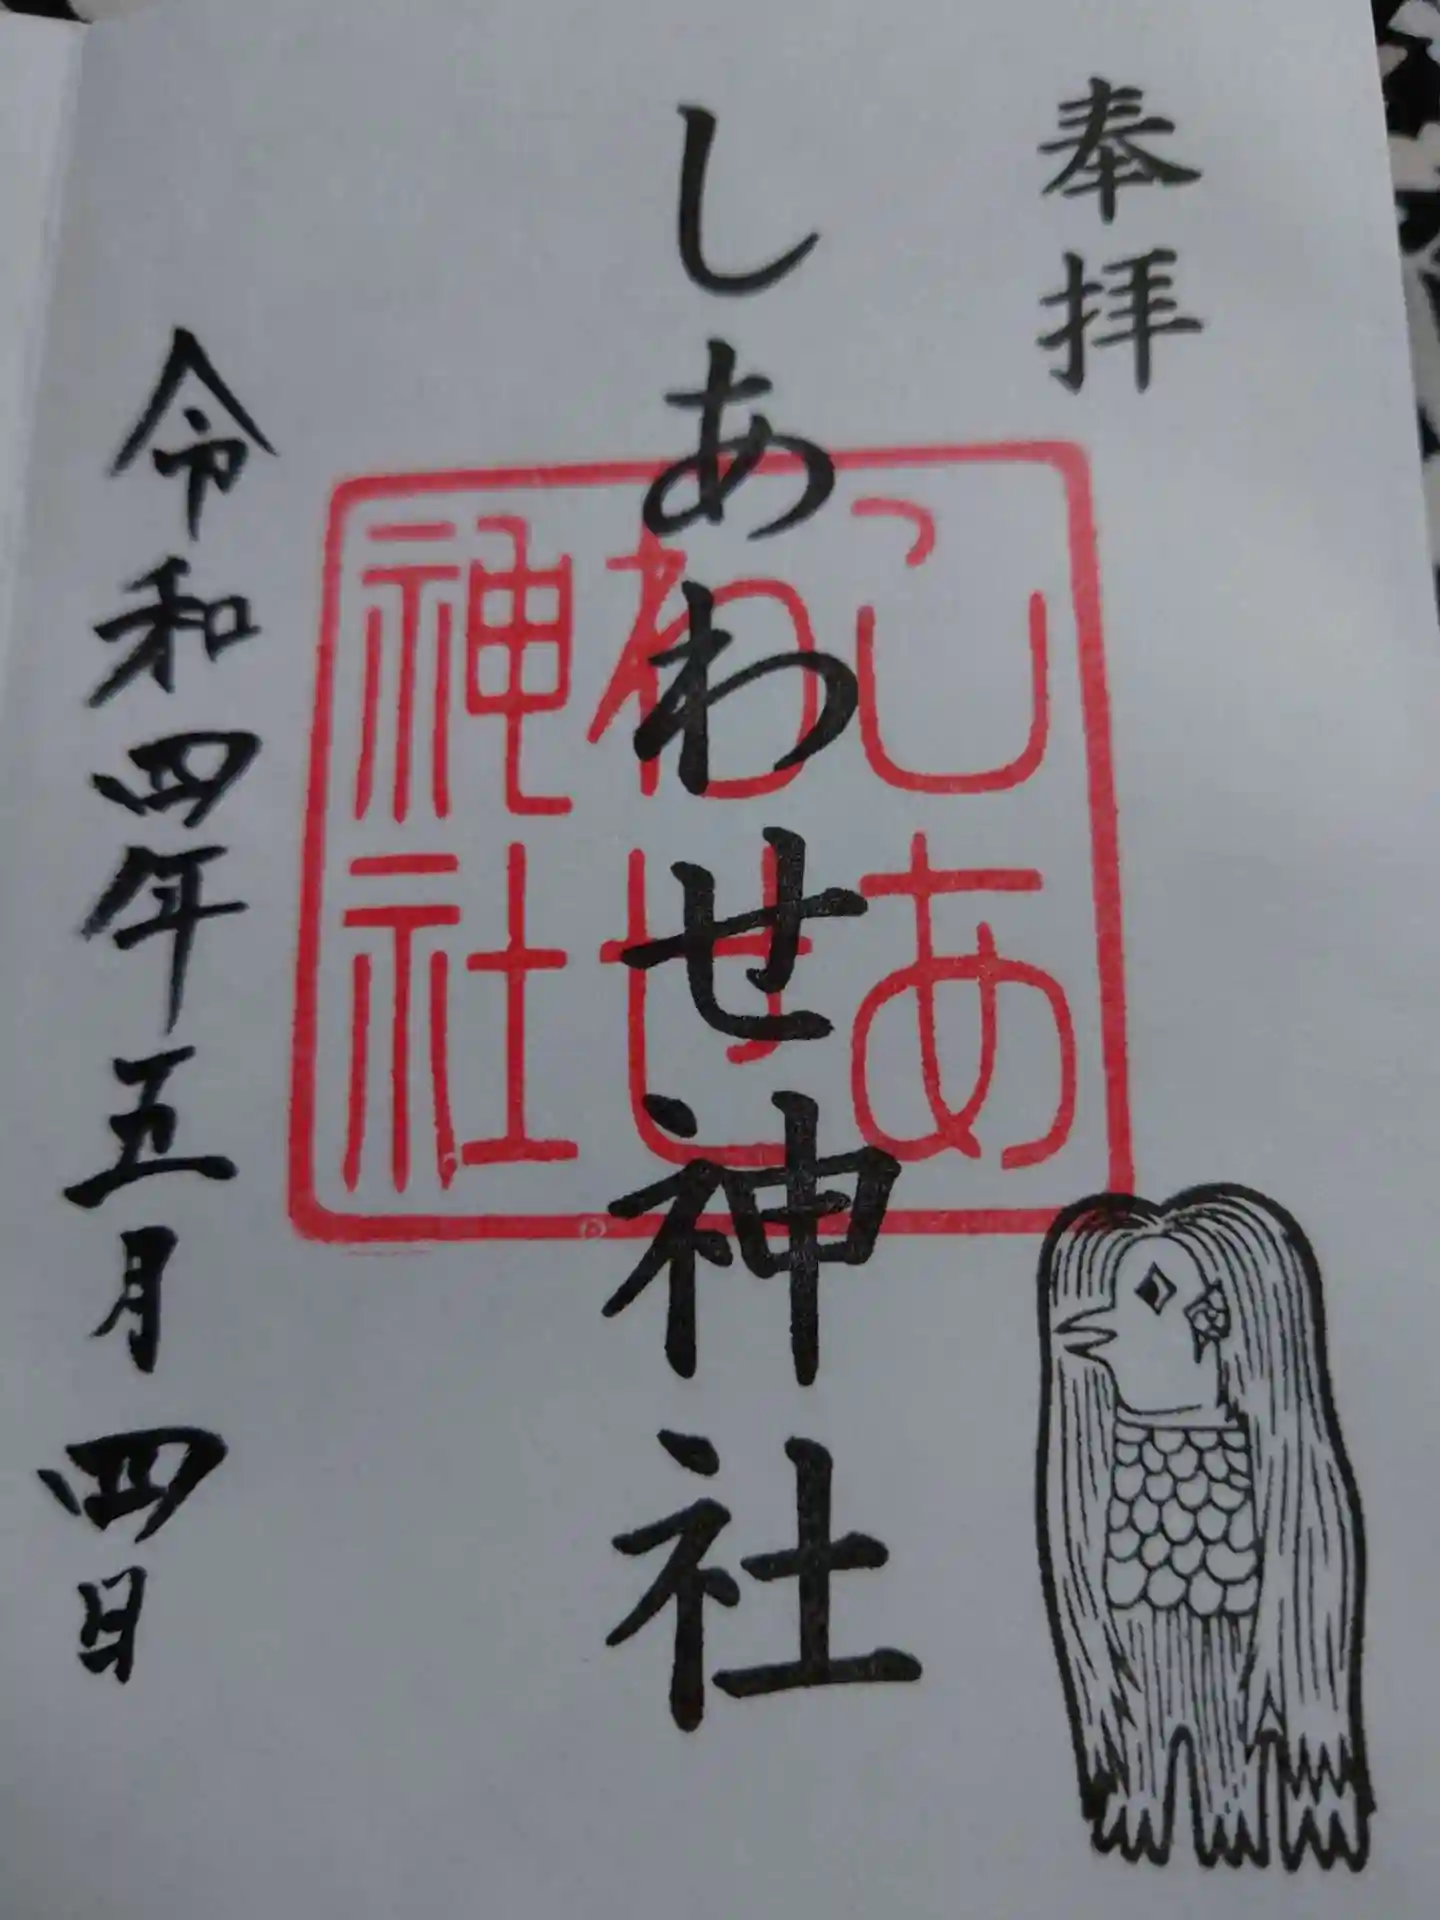 奉拝
しあわせ神社
しあ
わせ
神社
令和四年五月四日